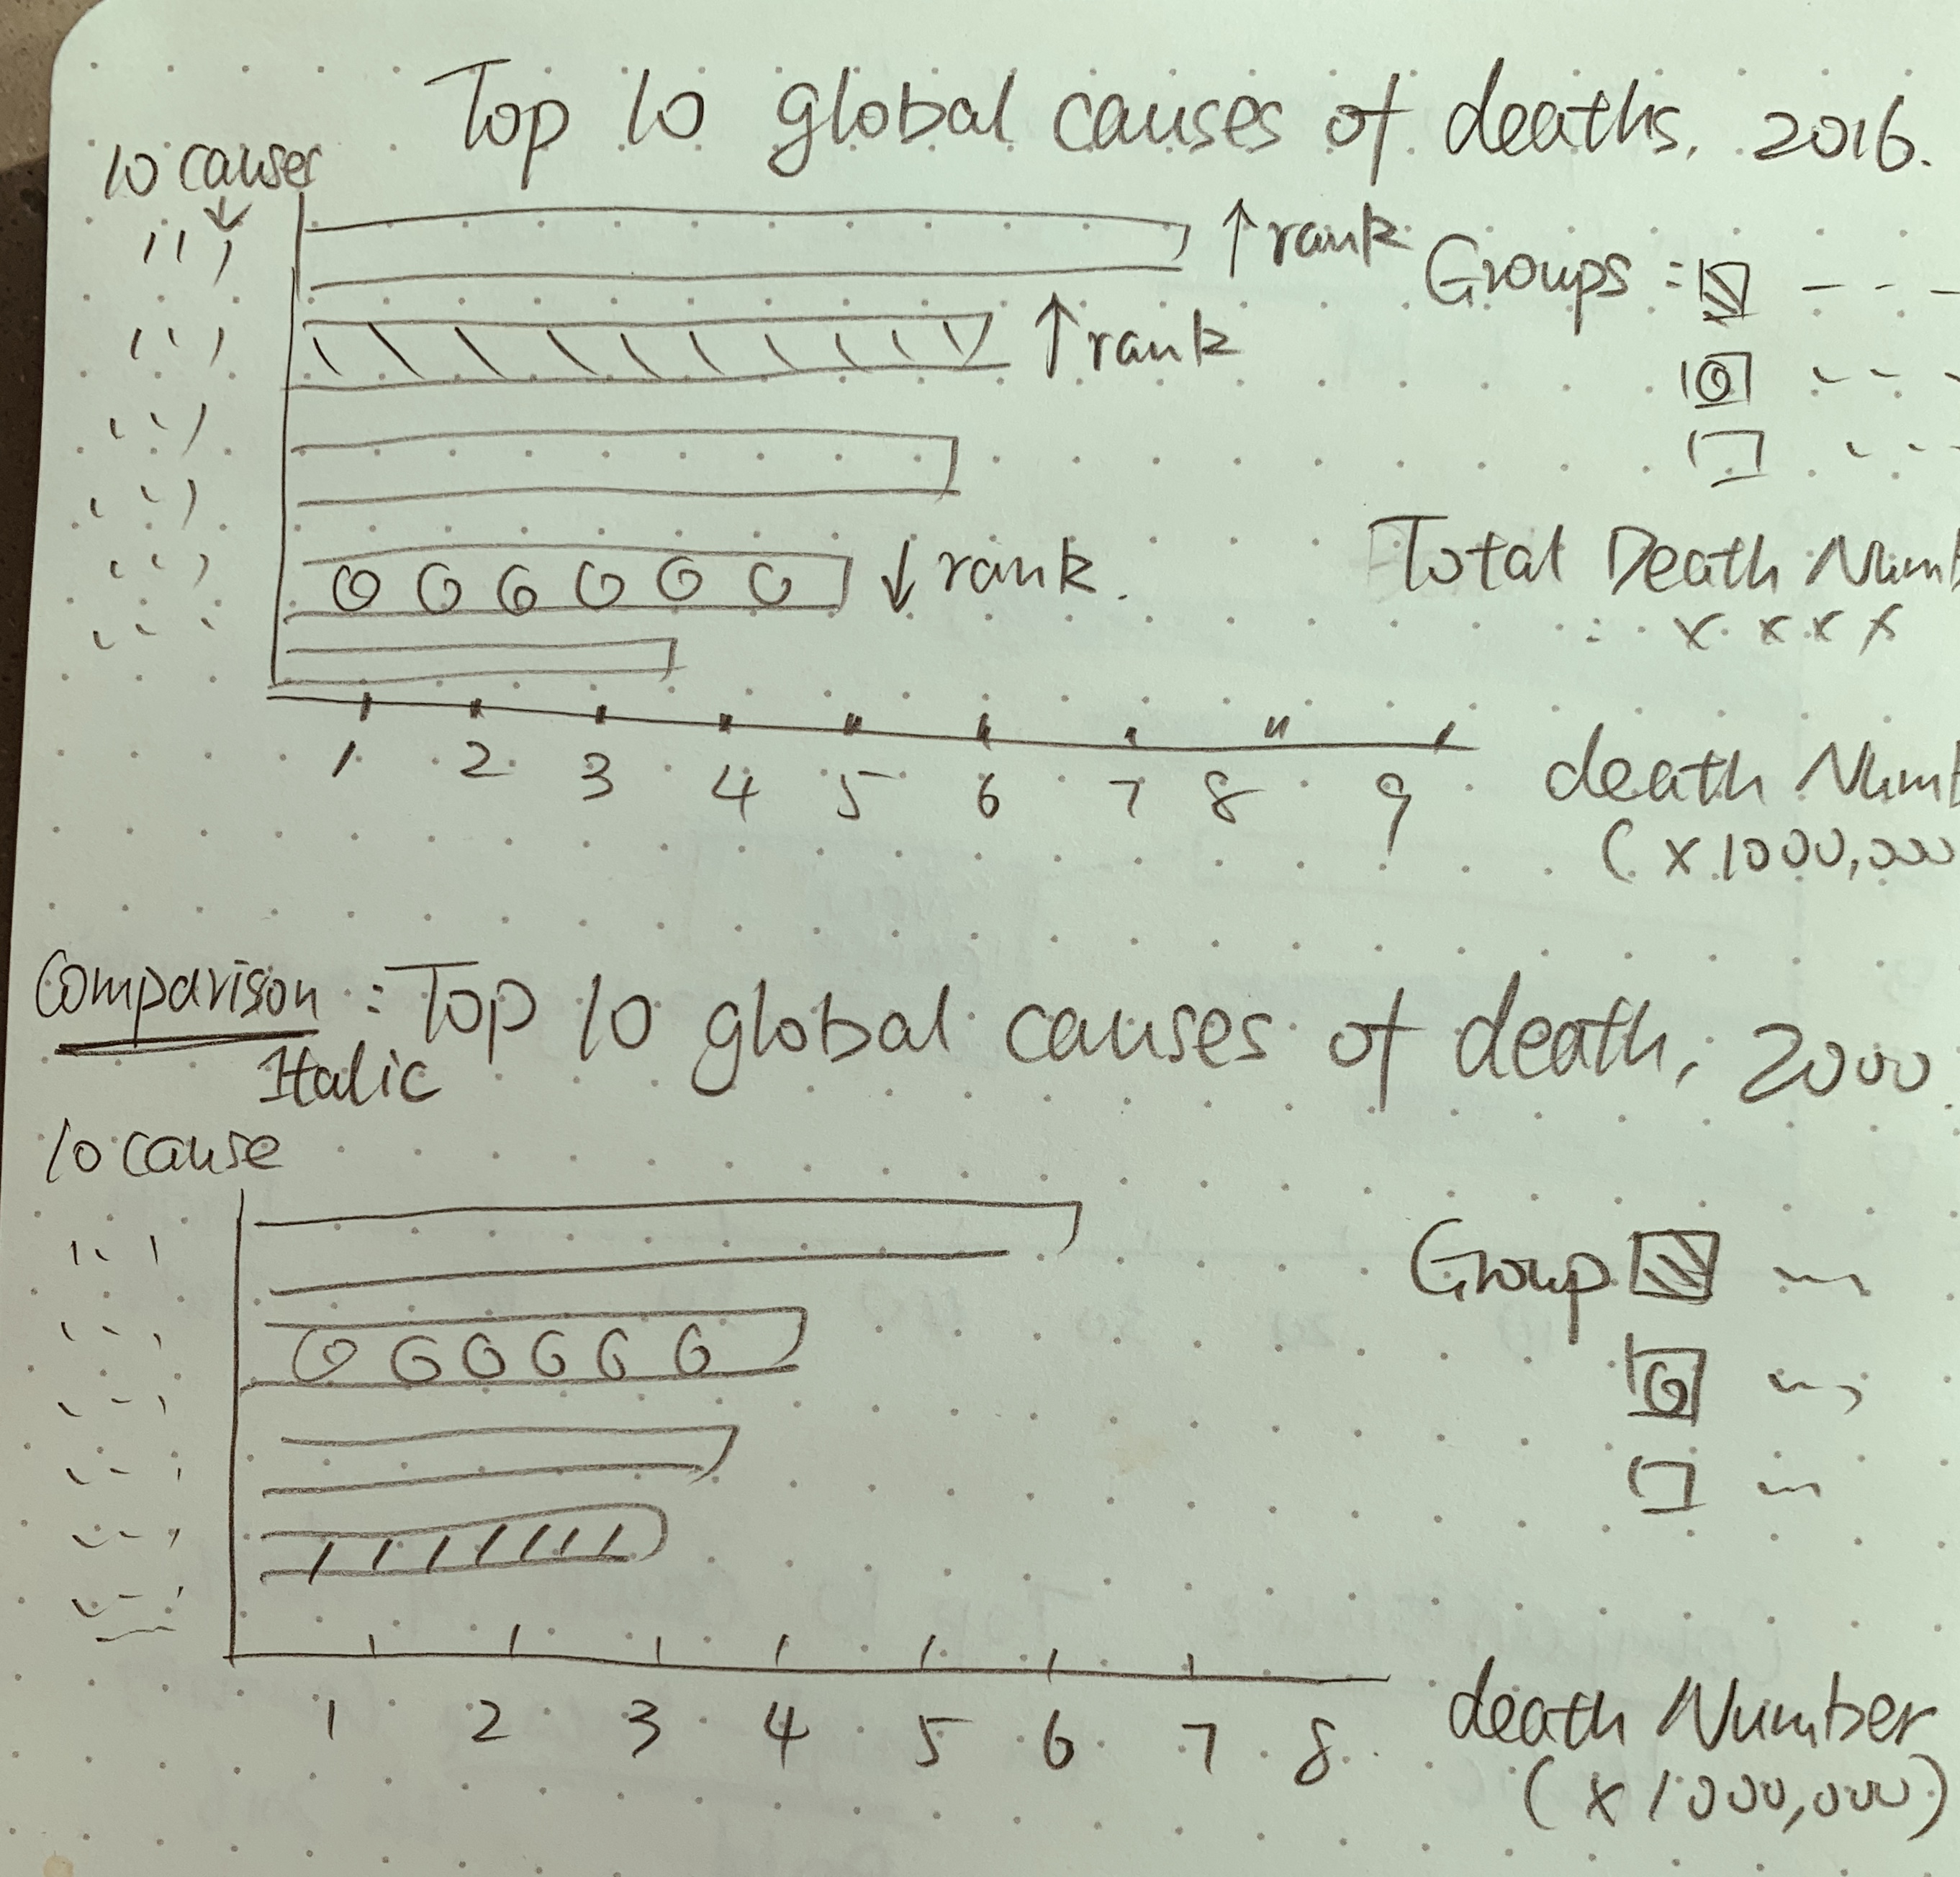 Top 10 global causes of deaths, 2016.
10 causes
↑ rank
Groups :
↑ rank
↓ rank.
Total Death Numb
: x x x x
1 2 3 4 5 6 7 8 9
death Numb
(x1000,000
Comparison : Top 10 global causes of death, 2000.
Italic
10 cause
Group
1 2 3 4 5 6 7 8
death Number
(x1000,000)